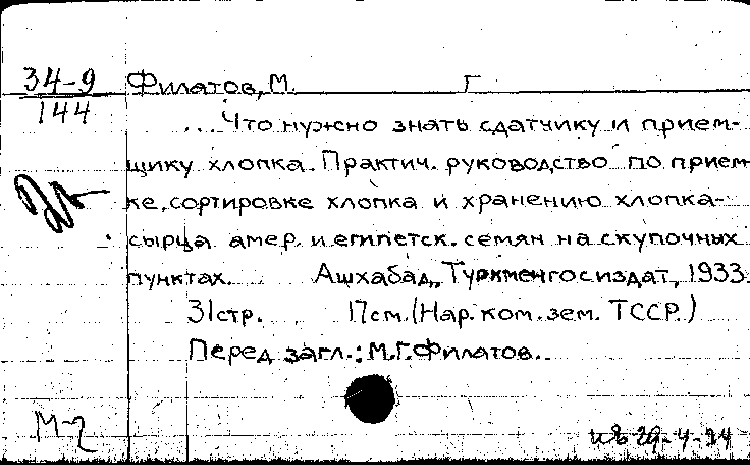 34-9 Филатов, М. Г
144
...Что нужно знать сдатчику и прием-
щику хлопка. Практич. руководство по прием
ке, сортировке хлопка и хранению хлопка-
сырца амер. и египетск. семян на скупочных
пунктах. Ашхабад, Туркменгосиздат, 1933.
31стр. 17см. (Нар. ком. зем. ТССР.)
Перед загл.: М.Г.Филатов.
29-4-34